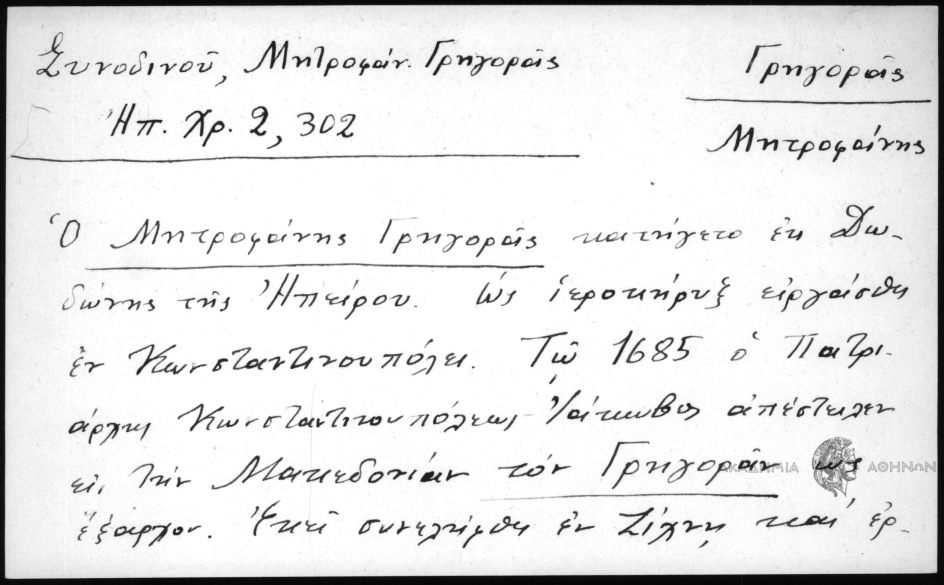 Συνοδινοῦ, Μητροφάν. Γρηγορᾶς
Ἠπ. Χρ. 2, 302
Γρηγορᾶς
Μητροφάνης
Ὁ Μητροφάνης Γρηγορᾶς κατήγετο ἐκ Δω-
δώνης τῆς Ἠπείρου. Ὡς ἱεροκήρυξ εἰργάσθη
ἐν Κωνσταντινουπόλει. Τῷ 1685 ὁ Πατρι-
άρχης Κωνσταντινουπόλεως Ἰάκωβος ἀπέστειλεν
εἰς τὴν Μακεδονίαν τὸν Γρηγορᾶν ὡς
ἔξαρχον. Ἐκεῖ συνελήφθη ἐν Ζίχνῃ καὶ ἐρ-
ΑΚΑΔΗΜΙΑ ΑΘΗΝΩΝ